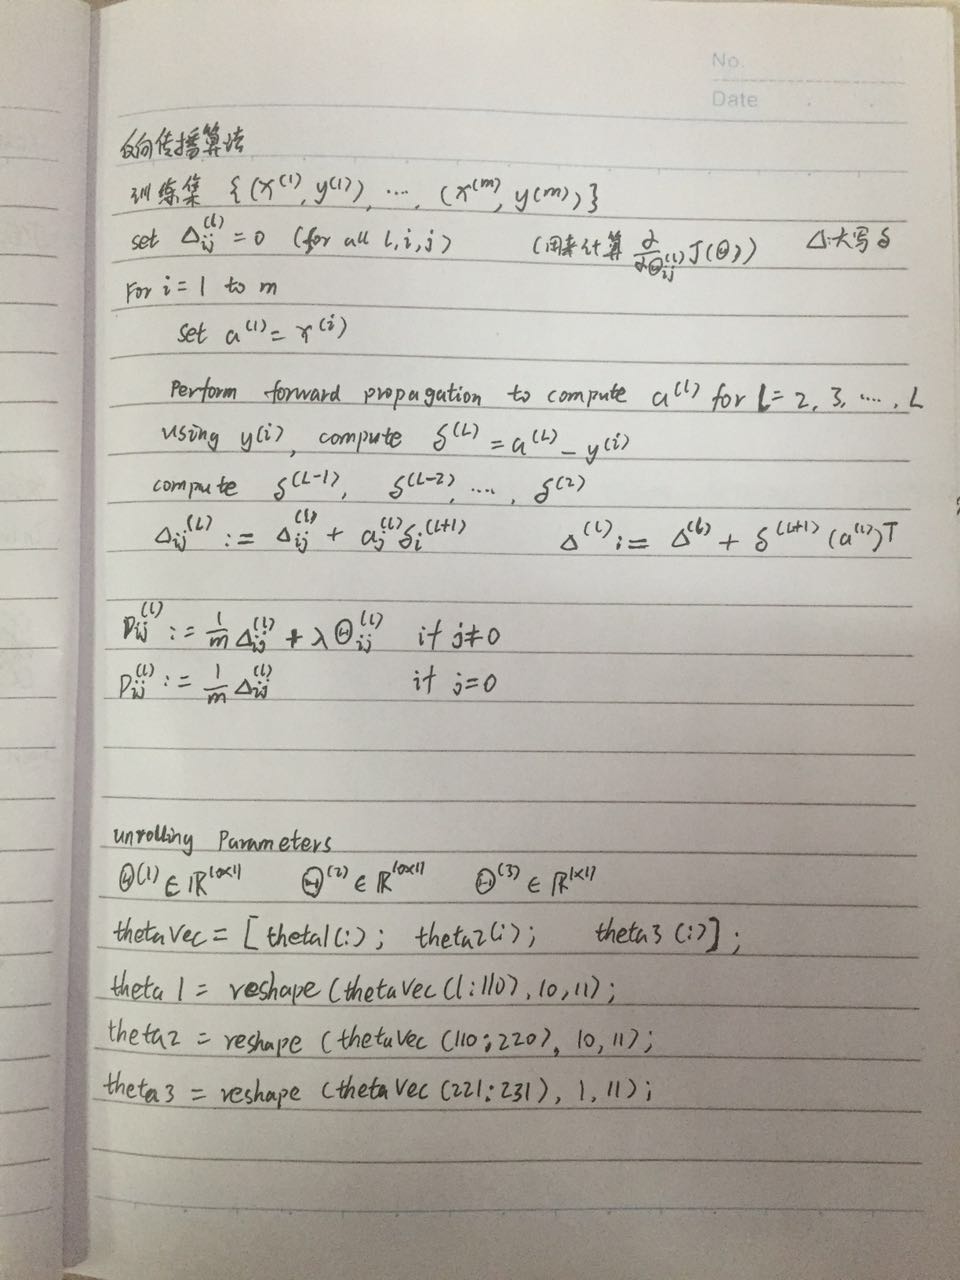 No.
Date
反向传播算法
训练集 {(x^(1), y(1)), ..., (x^(m), y(m))}
set Δ_ij^(l) = 0 (for all l,i,j) (用来计算 ∂/∂Θ_ij^(l) J(Θ)) Δ:大写δ
For i = 1 to m
set a^(1) = x^(i)
Perform forward propagation to compute a^(l) for l = 2, 3, ..., L
using y(i), compute δ^(L) = a^(L) - y(i)
compute δ^(L-1), δ^(L-2), ..., δ^(2)
Δ_ij^(l) := Δ_ij^(l) + a_j^(l) δ_i^(l+1) Δ^(l) := Δ^(l) + δ^(l+1) (a^(l))^T
D_ij^(l) := 1/m Δ_ij^(l) + λ Θ_ij^(l) if j≠0
D_ij^(l) := 1/m Δ_ij^(l) if j=0
unrolling Parameters
Θ^(1) ∈ R^10×11 Θ^(2) ∈ R^10×11 Θ^(3) ∈ R^1×11
thetaVec = [theta1(:); theta2(:); theta3(:)];
theta1 = reshape(thetaVec(1:110), 10, 11);
theta2 = reshape (thetaVec (110:220), 10, 11);
theta3 = reshape (thetaVec (221:231), 1, 11);